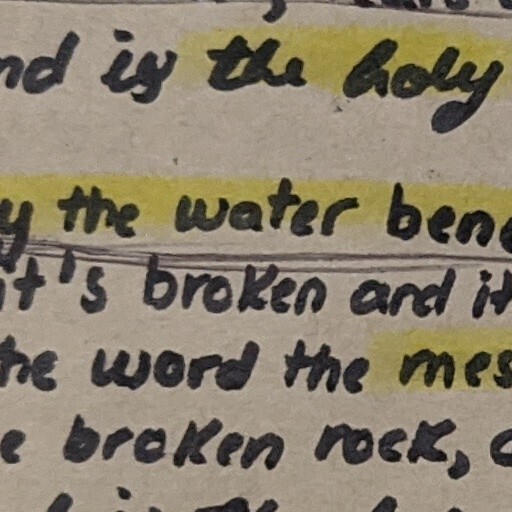 nd is the holy
y the water bene
it's broken and it
he word the mes
e broken rock,